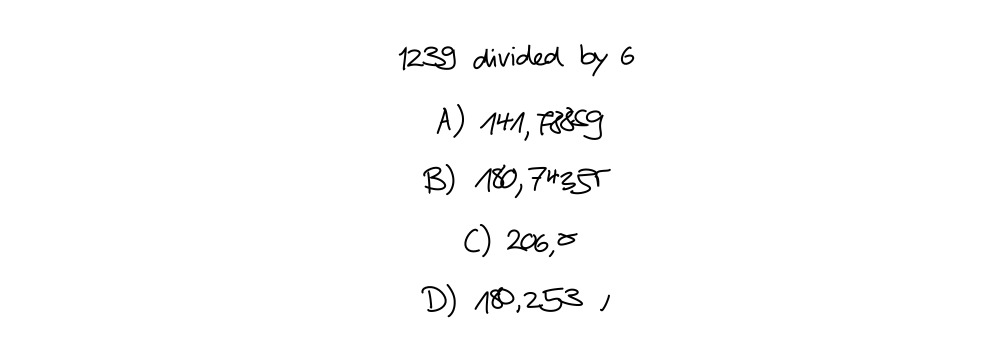 1239 divided by 6
A) 141,78859
B) 180,74355
C) 206,5
D) 180,253 ,